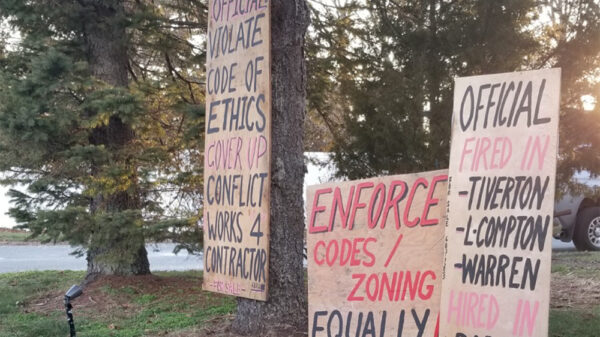 OFFICIAL
VIOLATE
CODE OF
ETHICS
COVER UP
CONFLICT
WORKS 4
CONTRACTOR
ENFORCE
CODES /
ZONING
EQUALLY
OFFICIAL
FIRED IN
-TIVERTON
-L-COMPTON
-WARREN
HIRED IN